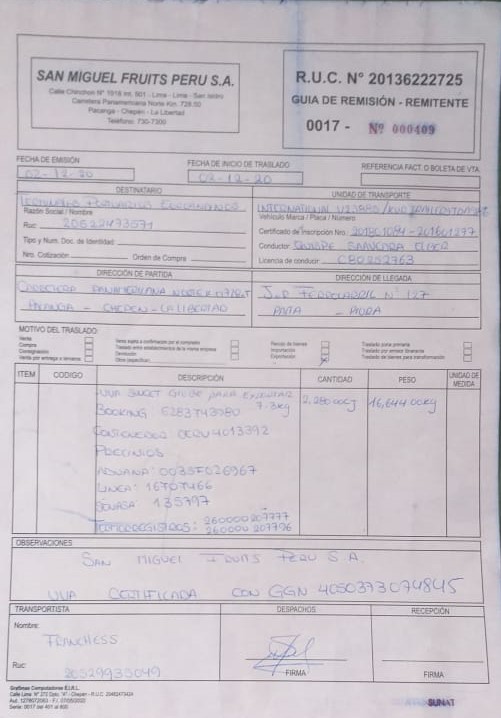 SAN MIGUEL FRUITS PERU S.A.
Calle Chinchon N° 1018 Int. 501 - Lima - Lima - San Isidro
Carretera Panamericana Norte Km. 728.50
Pacanga - Chepén - La Libertad
Teléfono: 730-7300
R.U.C. N° 20136222725
GUIA DE REMISIÓN - REMITENTE
0017 - Nº 000409
FECHA DE EMISIÓN
02-12-20
FECHA DE INICIO DE TRASLADO
02-12-20
REFERENCIA FACT. O BOLETA DE VTA
DESTINATARIO
Razón Social / Nombre
Ruc: 20522473571
Tipo y Num. Doc. de Identidad:
Nro. Cotización: Orden de Compra
UNIDAD DE TRANSPORTE
INTERNATIONAL
Vehículo Marca / Placa / Número
Certificado de Inscripción Nro: - 201601277
Conductor: QUISPE SAAVEDRA
Licencia de conducir: C80252763
DIRECCIÓN DE PARTIDA
CARRETERA PANAMERICANA NORTE
PACANGA - CHEPEN - LA LIBERTAD
DIRECCIÓN DE LLEGADA
FERROCARRIL N° 127
PAITA - PIURA
MOTIVO DEL TRASLADO:
Venta
Compra
Consignación
Venta con entrega a terceros
Venta sujeta a confirmación por el comprador
Traslado entre establecimientos de la misma empresa
Devolución
Otros (especificar)
Recojo de bienes
Importación
Exportación X
Traslado zona primaria
Traslado por emisor itinerante
Traslado de bienes para transformación
ITEM CODIGO DESCRIPCIÓN CANTIDAD PESO UNIDAD DE MEDIDA
UVA SWEET GLOBE PARA EXPORTAR 2,280.00CJ 16,644.00KG
7.3Kg
BOOKING
CONTENEDOR
PRECINTOS
ADUANA:
LINEA:
SENASA: 135797
TERMOREGISTROS: 260000207777
260000207796
OBSERVACIONES
SAN MIGUEL FRUITS PERU S.A.
UVA CERTIFICADA CON GGN 4050373074845
TRANSPORTISTA
Nombre:
FRANCHESS
Ruc: 20529935049
DESPACHOS
FIRMA
RECEPCIÓN
FIRMA
Serie: 0017 del 401 al 600
SUNAT